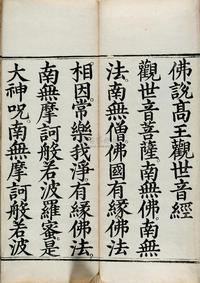 佛說高王觀世音經
觀世音菩薩。南無佛。南無
法。南無僧。佛國有緣佛法
相因。常樂我淨。有緣佛法。
南無摩訶般若波羅蜜。是
大神呪。南無摩訶般若波